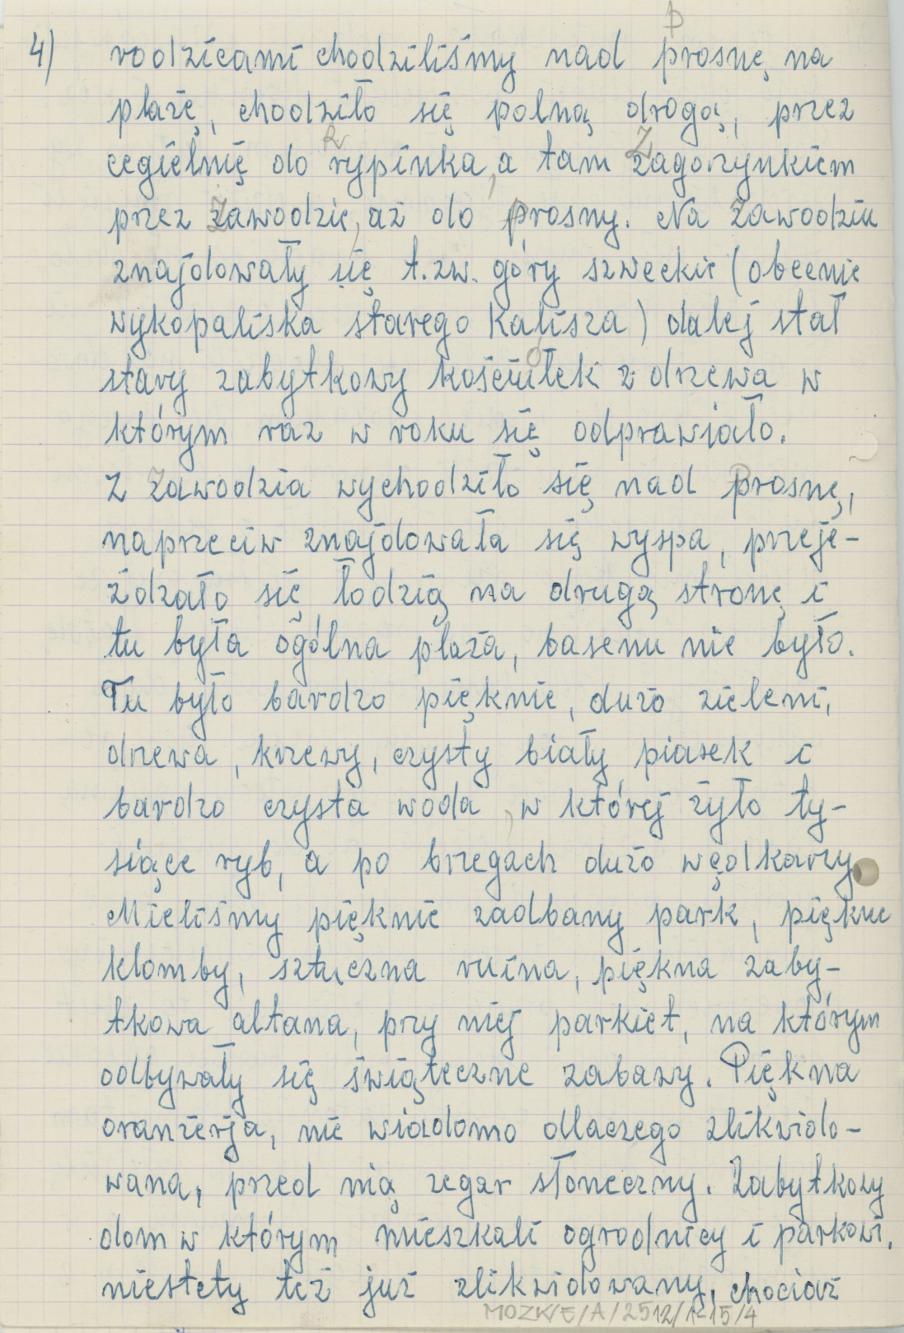 4) rodzicami chodziliśmy nad prosnę na
plażę, chodziło się polną drogą, przez
cegielnię do rypinka, a tam zagorzynkiem
przez zawodzie, aż do prosny. Na zawodziu
znajdowały się t.zw. góry szweckie (obecnie
wykopaliska starego Kalisza) dalej stał
stary zabytkowy kościołek z drzewa w
którym raz w roku się odprawiało.
Z zawodzia wychodziło się nad prosnę,
naprzeciw znajdowała się wyspa, przeje-
żdzało się łodzią na drugą stronę i
tu była ogólna plaża, basenu nie było.
Tu było bardzo pięknie, dużo zieleni,
drzewa, krzewy, czysty biały piasek i
bardzo czysta woda, w której żyło ty-
siące ryb, a po brzegach dużo wędkarzy.
Mieliśmy pięknie zadbany park, piękne
klomby, sztuczna ruina, piękna zaby-
tkowa altana, przy niej parkiet, na którym
odbywały się świąteczne zabawy. Piękna
oranżerja, nie wiadomo dlaczego zlikwido-
wana, przed nią zegar słoneczny. Zabytkowy
dom w którym mieszkali ogrodnicy i parkowi,
niestety też już zlikwidowany, chociaż
MOZK/E/A/2512/1-15/4